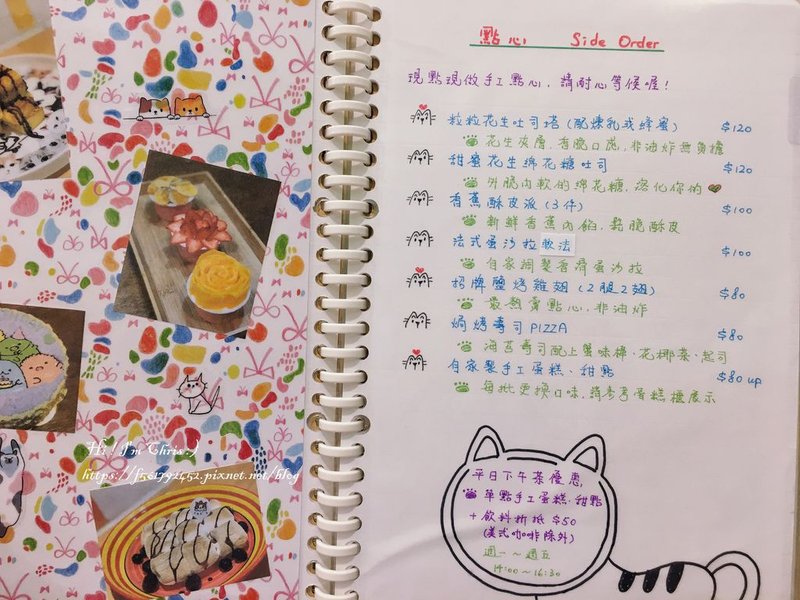 Hi ! I'm Chris :)
https://f56179452.pixnet.net/blog
點心 Side Order
現點現做手工點心，請耐心等候喔！
粒粒花生吐司塔（配煉乳或蜂蜜） $120
花生夾層，香脆口感，非油炸無負擔
甜蜜花生綿花糖吐司 $120
外脆內軟的綿花糖，溶化你的
香蕉酥皮派（3件） $100
新鮮香蕉內餡，鬆脆酥皮
法式蛋沙拉軟法 $100
自家調製香滑蛋沙拉
招牌鹽烤雞翅（2腿2翅） $80
最熱賣點心，非油炸
焗烤壽司PIZZA $80
海苔壽司配上蟹味棒、花椰菜、起司
自家製手工蛋糕、甜點 $80 up
每批更換口味，請參考蛋糕櫃展示
平日下午茶優惠
單點手工蛋糕．甜點
+ 飲料折抵 $50
(美式咖啡除外)
週一～週五
14:00～16:30